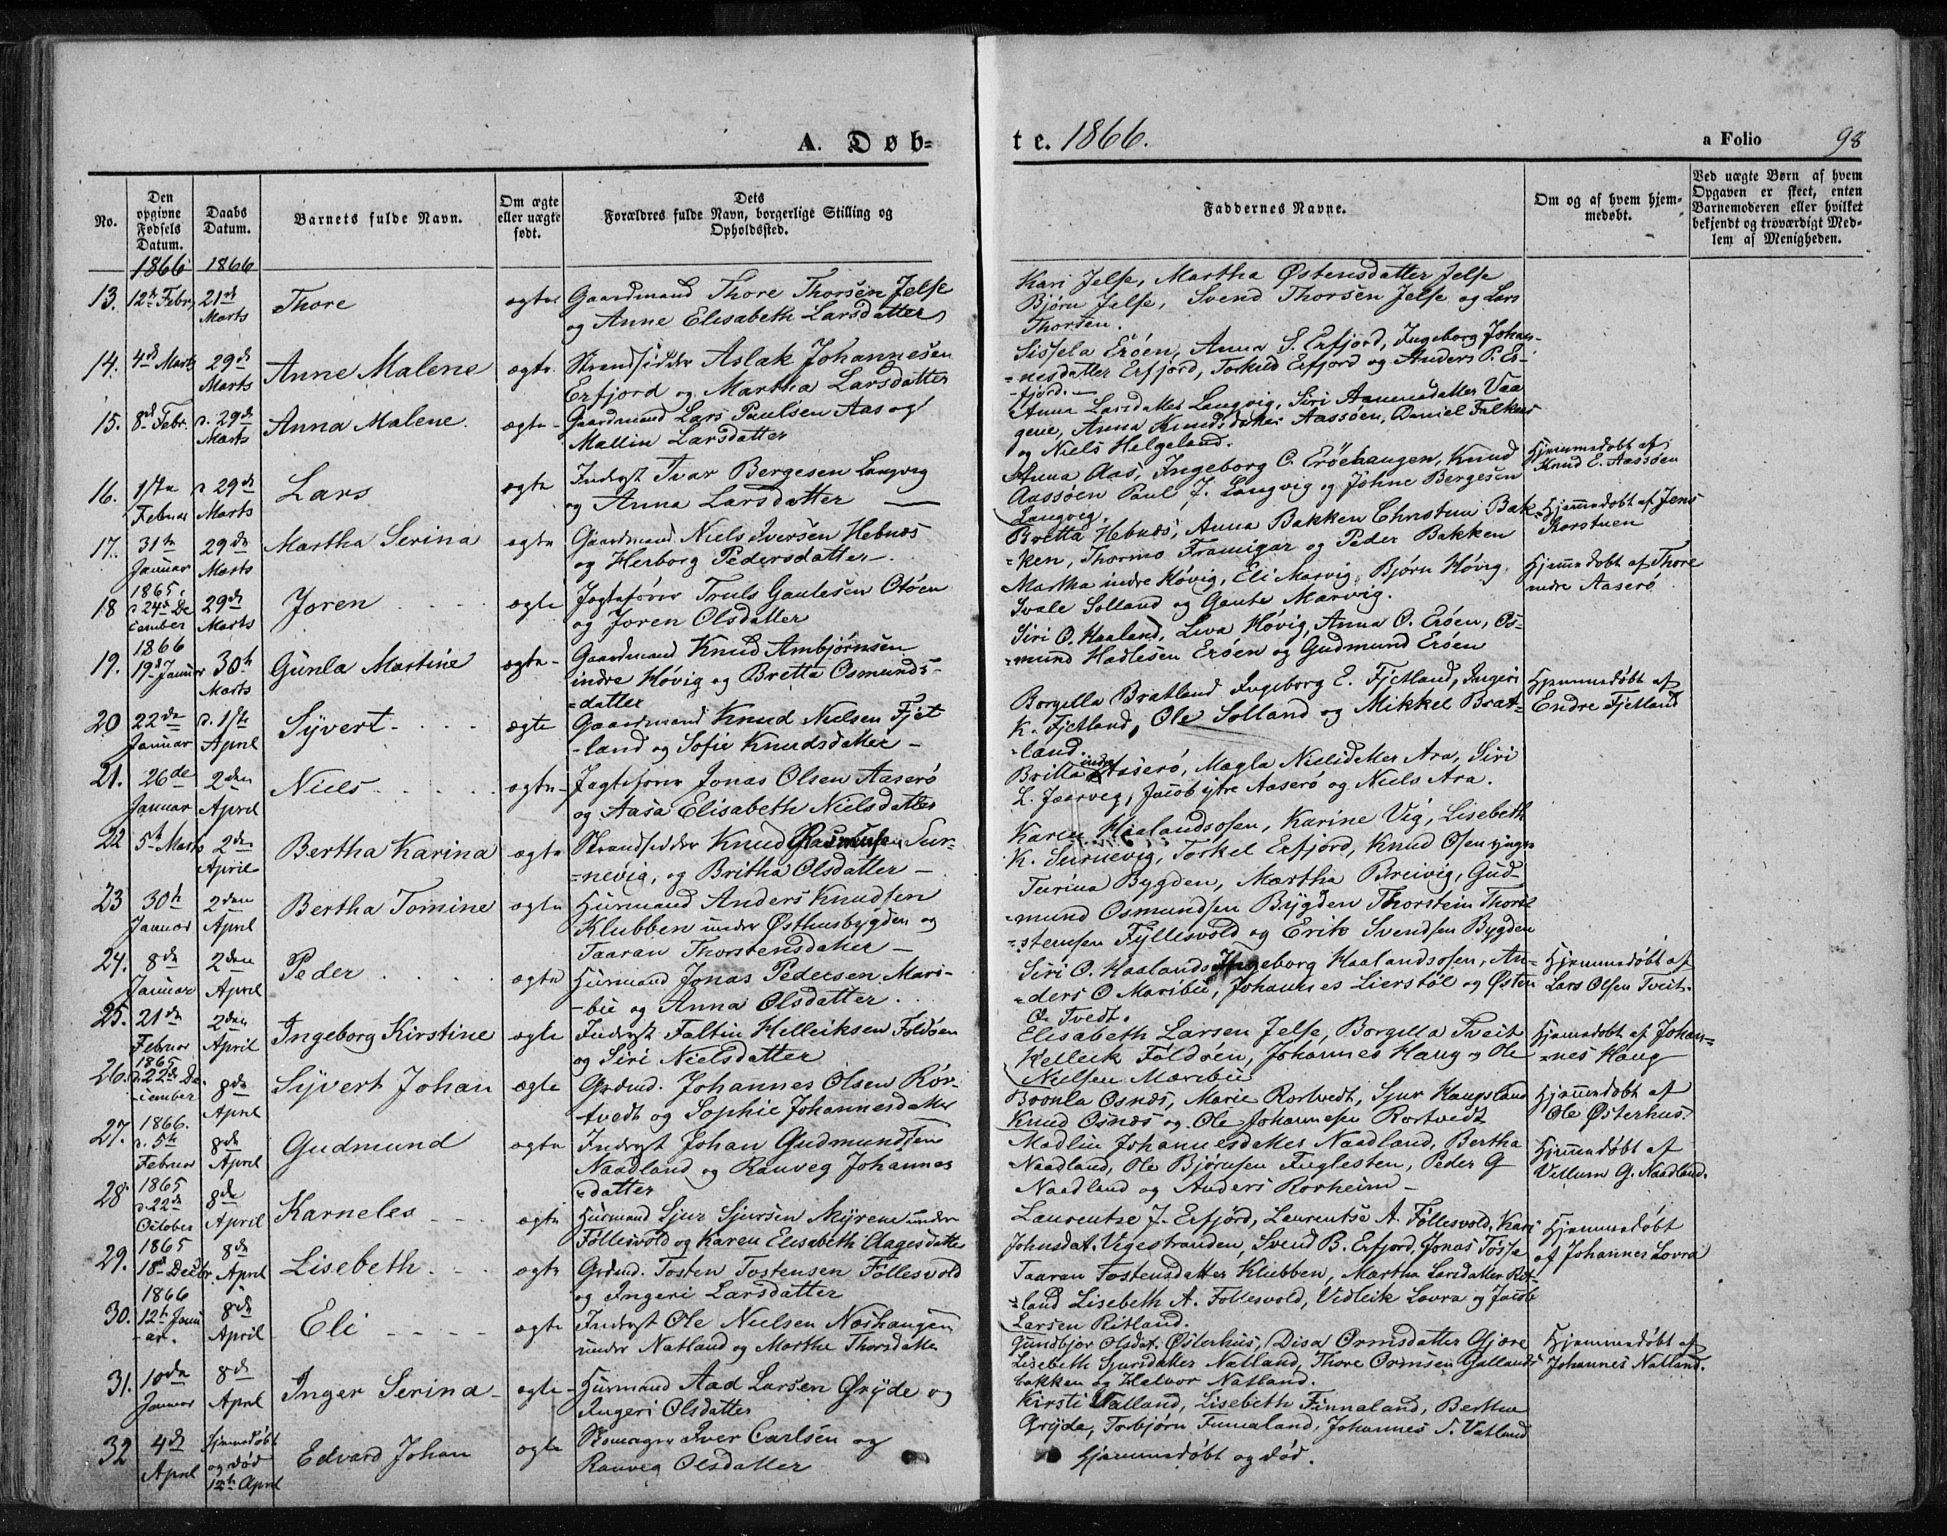 A. Døb-
te. 1866.
a Folio 98
No.
Den opgivne Fødsels Datum.
Daabs Datum.
Barnets fulde Navn.
Om ægte eller uægte født.
Dets Forældres fulde Navn, borgerlige Stilling og Opholdssted.
Faddernes Navne.
Om og af hvem hjemmedøbt.
Ved uægte Børn af hvem Opgaven er skeet, enten Barnemoderen eller hvilket bekjendt og troværdigt Medlem af Menigheden.
1866 1866
13. 12te Febr. 21de Marts Thore ægte Gaardmand Thore Thorsen Jelse
og Anne Elisabeth Larsdatter
Kari Jelse, Martha Østensdatter Jelse
Bjørn Jelse, Svend Thorsen Jelse og Lars
Thorsen.
14. 4de Marts 29de Marts Anne Malene ægte Strandsidder Aslak Johannesen
Erfjord og Martha Larsdatter
Sissela Erøen, Anna S. Erfjord, Ingeborg Johan-
=nesdatter Erfjord, Torkild Erfjord og Anders P. Er-
-fjord.
15. 8de Febr. d. 29de Marts Anna Malene. ægte Gaardmand Lars Paulsen Aas og
Mallin Larsdatter
Anna Larsdatter Langvig, Siri Aanensdatter Vaa-
gene, Anna Knudsdatter Aassøen, Daniel
og Niels Helgeland.
16. 1ste Februar d. 29de Marts Lars ægte Inderst Ivar Bergesen Langvig
og Anna Larsdatter
Anna Aas, Ingeborg O. Erøehaugen, Knud
Aassøen Paul J. Langvig og Johne Bergesen
Langvig.
Hjemmedøbt af
Knud E. Aassøen
17. 31te Januar 29de Marts Martha Serina ægte Gaardmand Niels Iversen Hebnes
og Herborg Pedersdatter
Britta Hebnes, Anna Bakken Christine Bak-
-ken, Thormo Framigar og Peder Bakken
Hjemmedøbt af Jens
18 1865. d. 24de December 29de Marts Joren ægte Jagtefører Truls Gautesen Otøen
og Joren Olsdatter
Martha indre Høvig, Eli Marvig, Bjørn Høvig
Ivale Solland og Gaute Marvig.
Hjemmedøbt af Thore
indre Aaserø
19. 1866 19de Januar 30te Marts Gunla Martine ægte Gaardmand Knud Ambjørnsen
indre Høvig og Britta Osmunds-
=datter
Siri O. Haaland, Liva Høvig Anna O. Erøen, Os-
=mund Hadlesen Erøen og Gudmund Erøen
20 22de Januar d. 1ste April Syvert ægte Gaardmand Knud Nielsen Fjet
-land og Sofie Knudsdatter
Borgilla Bratland Ingeborg E. Fjetland, Ingeri
K. Fjetland, Ole Solland og Mikkel Brat-
-land.
Hjemmedøbt af
Endre Fjetland
21. 26de Januar 2den April Niels ægte Jagtefører Jonas Olsen Aaserø
og Aasa Elisabeth Nielsdatter
Britta indre Aaserø, Magla Nielsdatter Ara, Siri
L. Jaarveg, Jacob ytre Aaserø og Niels Ara.
22 5te Marts 2den April Bertha Karina ægte Strandsidder Knud Rasmusen Sur-
=nevig, og Britha Olsdatter
Karen Haalandsosen, Karine Vig, Lisebeth
K. Surnevig, Torkel Erfjord, Knud Osen yngre
23 30te Januar 2den April Bertha Tomine ægte Huusmand Anders Knudsen
Klubben under Østhusbygden og
Taaran Thorstensdatter
Turina Bygden, Martha Breivig, Gud-
=mund Osmundsen Bygden Thorstein Thor-
=stensen Fyllesvold og Erik Svendsen Bygden
24. 8de Januar 2den April Peder ægte Huusmand Jonas Pedersen Mari-
-bu og Anna Olsdatter
Siri O. Haalands Ingeborg Haalandsosen, An-
=ders O Maribu, Johannes Lierstøl og Østen
O. Tvedt.
Hjemmedøbt af
Lars Olsen Tveit.
25. 21de Februar 2den April Ingeborg Kirstine ægte Inderst Faltin Helleiksen Foldøen
og Siri Nielsdatter
Elisabeth Larsen Jelse, Borgilla Tveit
Helleik Foldøen, Johannes Haug og Ole
Nielsen Maribu
Hjemmedøbt af Johan-
=nes Haug
26. 1865 d. 22de December 8de April Syvert Johan ægte Grdmd. Johannes Olsen Rør-
tvedt og Sophie Johannesdatter
Boonla Osnes, Marie Rortvedt, Sjur Haugsland
Knud Osnes og Ole Johannesen Rortvedt
Hjemmedøbt af
Ole Østerhus.
27. 1866. d. 5te Februar 8de April Gudmund ægte Inderst Johan Gudmundsen
Naadland og Ranveg Johannes
=datter
Madlin Johannesdatter Naadland, Bertha
Naadland, Ole Bjørnsen Fuglesten, Peder G
Naadland og Anders Rorheim
Hjemmedøbt af
Vellum G. Naadland.
28. 1865 d. 22de October 8de April Karneles ægte Huusmand Sjur Sjursen Myrene under
Follesvold og Karen Elisabeth Aagesdatter
Laurentse J. Erfjord, Laurentse A. Follesvold, Kari
Johnsdat. Vigestranden, Svend B. Erfjord, Jonas Tøssa
Hjemmedøbt
af Johannes Lovra
29. 1865 18de Decbr. 8de April Lisebeth ægte Grdmd. Tosten Tostensen Follesvold
og Ingeri Larsdatter
Taaran Tostensdatter Klubben, Martha Larsdatter Rit-
=land Lisebeth A. Follesvold, Vidleik Lovra og Jacob
Larsen Ritland.
30. 1866 12te Januar. 8de April Eli ægte Inderst Ole Nielsen Neshaugen
under Natland og Marthe Thorsdatter
Gundbjor Olsdat. Østerhus, Disa Ormsdatter Gjøre
Lisebeth Sjursdatter Natland, Thore Ormsen Gallands
bakken og Halvor Natland.
Hjemmedøbt af
Johannes Natland.
31. 10de Januar 8de April Inger Serina ægte Huusmand Aad Larsen Grijde og
Ingeri Olsdatter
Kirsti Vatland, Lisebeth Finnaland, Bertha
Grijde, Torbjørn Finnaland, Johannes S. Vatland
32 4de April Hjemmedøbt og død 12te April Edvard Johan ægte Skomager Iver Carlsen og
Ranveg Olsdatter
Hjemmedøbt og død.